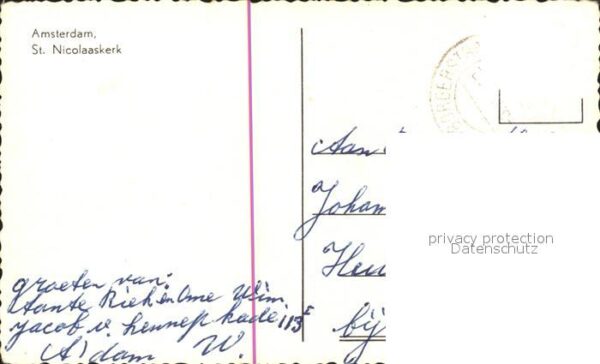 Amsterdam,
St. Nicolaaskerk
Aan
Joham
privacy protection
Datenschutz
groeten van:
tante Riek en Ome Wim.
Jacob v. hennepkade 113
A'dam W.
bij